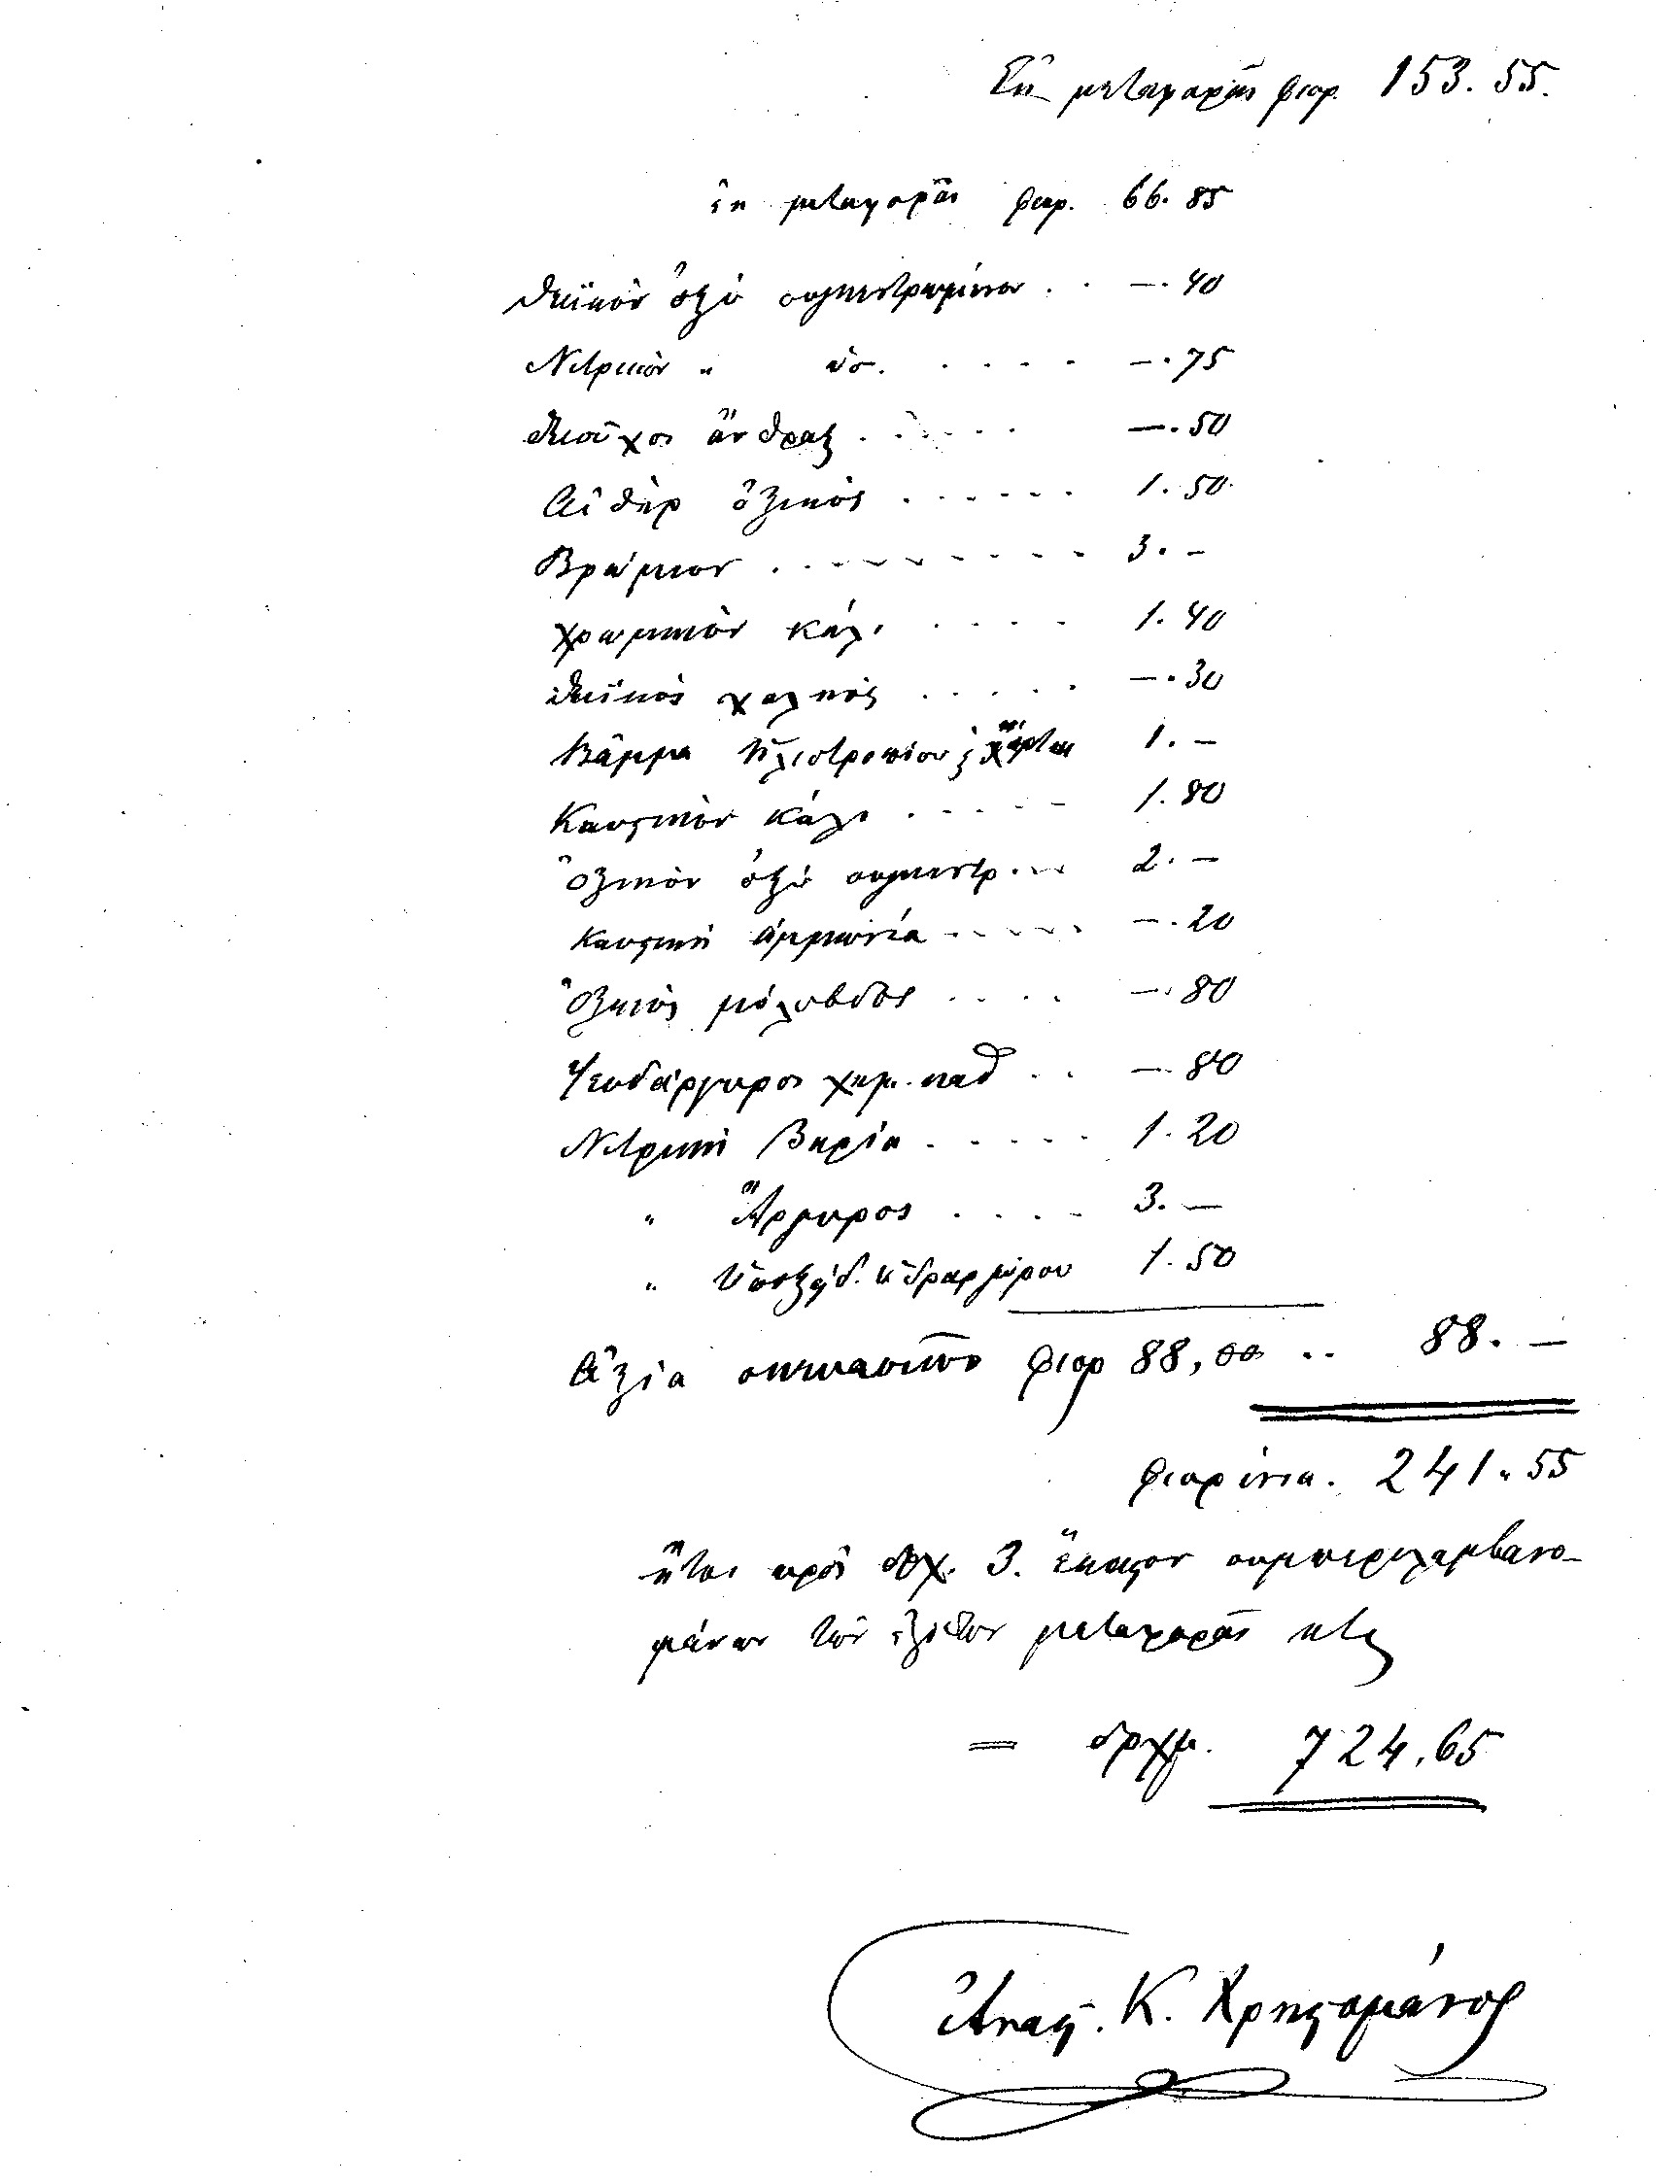 Ἐκ μεταφορᾶς φιορ. 153. 55.
ἐκ μεταφορᾶς φιορ. 66. 85
Θειϊκὸν ὀξὺ συγκεντρωμένον . . —. 40
Νιτρικὸν " ὡσ. . . . . —. 75
Θειοῦχος ἄνθραξ . . . . . —. 50
Αἰθὴρ ὀξικὸς . . . . . . 1. 50.
Βρώμιον . . . . . . . . . 3. —
Χρωμικὸν Κάλι . . . . 1. 40
Θειϊκὸς χαλκὸς . . . . . —. 30
Βάμμα Ἡλιοτροπίου χάρται 1. —
Καυςικὸν Κάλι . . . . . 1. 80
Ὀξικὸν ὀξὺ συγκεντρ. . . 2. —
Καυςικὴ ἀμμωνία . . . . . —. 20
Ὀξικὸς μόλυβδος . . . . —. 80
Ψευδάργυρος χημ. καθ . . —. 80
Νιτρικὴ Βαρία . . . . . 1. 20
" Ἄργυρος . . . . 3. —
" Ὑποξείδ. ὑδραργύρου 1. 50
Ἀξία σκευασιῶν φιορ 88,00 .. 88. —
φιορίνια. 241. 55
ἤτοι πρὸς δρχ. 3. ἕκαςον συμπεριλαμβανο-
μένων τῶν ἐξόδων μεταφορᾶς κτλ
= δρχμ. 724,65
Ἀνας. Κ. Χρηςομάνος